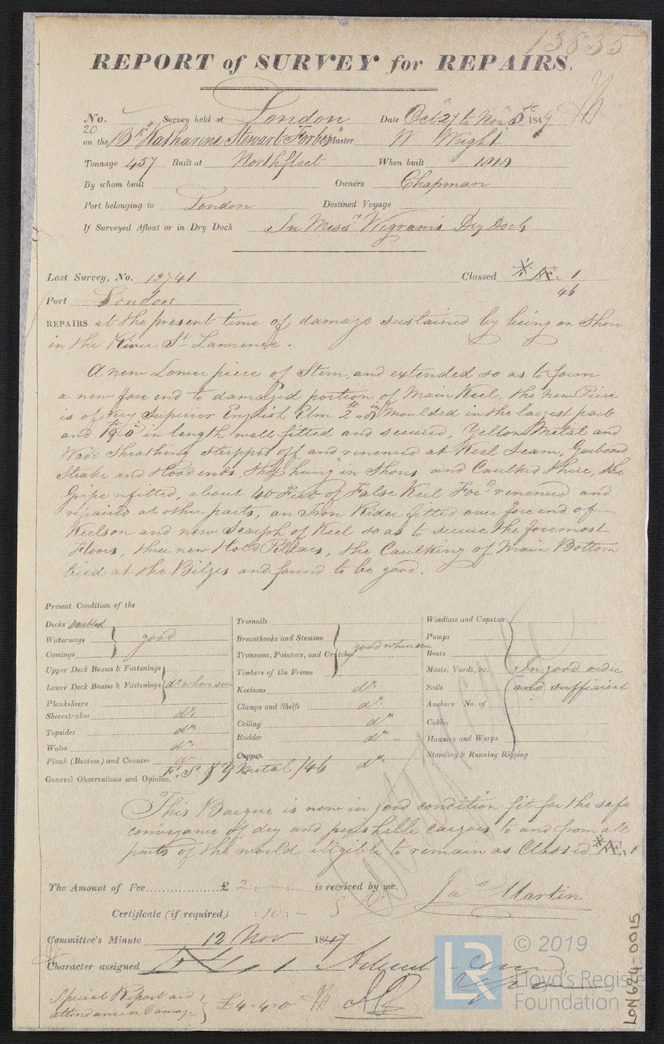 13835
REPORT of SURVEY for REPAIRS.
No. 20 Survey held at London Date Octr 27 to Novr 5th 1847
on the Bk Katharine Stewart Forbes Master W Wright
Tonnage 457 Built at Northfleet When built 1818
By whom built Owners Chapman
Port belonging to London Destined Voyage
If Surveyed Afloat or in Dry Dock In Messrs Wigrams Dry Dock
Last Survey, No. 12741 Classed Æ 1
Port London 46
REPAIRS at the present time of damage sustained by being on Shore
in the River St Lawrence.
A new Lower piece of Stem, and extended so as to form
a new fore end to damaged portion of Main Keel, the new Piece
is of very Superior English Elm 2 ft moulded in the largest part
and 19.0 in length well fitted and secured, Yellow Metal and
Wood Sheathing stripped off and renewed at Keel Seam, Garboard
Strake and Hood ends, Ship hung in Shores and Caulked there, the
Gripe refitted, about 60 Feet of False Keel Ford renewed and
repaired at other parts, an Iron Rider fitted over fore end of
Keelson and new Scarph of Keel so as to secure the foremost
Floors, three new Hold Pillars, the Caulking of Main Bottom
tried at the Bilges and found to be good.
Present Condition of the
Decks Doubled
Waterways good
Comings
Upper Deck Beams & Fastenings
Lower Deck Beams & Fastenings do where seen
Planksheers
Sheerstrakes do
Topsides do
Wales do
Plank (Bottom) and Counter do
Treenails
Breasthooks and Stemson good where seen
Transoms, Pointers, and Crutches
Timbers of the Frame
Keelsons do
Clamps and Shelfs do
Ceiling do
Rudder do
Copper do
Windlass and Capstan
Pumps
Boats
Masts, Yards, &c. In good order
Sails and sufficient
Anchors No. of
Cables
Hawsers and Warps
Standing & Running Rigging
General Observations and Opinion, F. S & Y Metal /46
This Barque is now in good condition fit for the safe
conveyance of dry and perishable cargoes to and from all
parts of the world eligible to remain as Classed Æ 1
The Amount of Fee £ 2 is received by me,
Jas Martin
Certificate (if required) : 10 : -
Committee's Minute 12 Nov 1847
Character assigned Æ 1
Special Report and
attendance on Damage } £4.4.0
LR
© 2019
Lloyd's Register
Foundation
LON624-0015